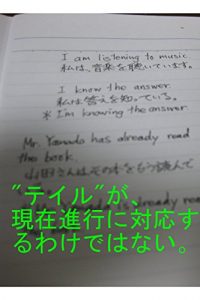 I am listening to music
私は、音楽を聴いています。
I know the answer
私は答えを知っている。
* I'm knowing the answer
Mr. Yamada has already read
the book.
山田さんはその本をもう読んで
"テイル"が、
現在進行に対応す
るわけではない。